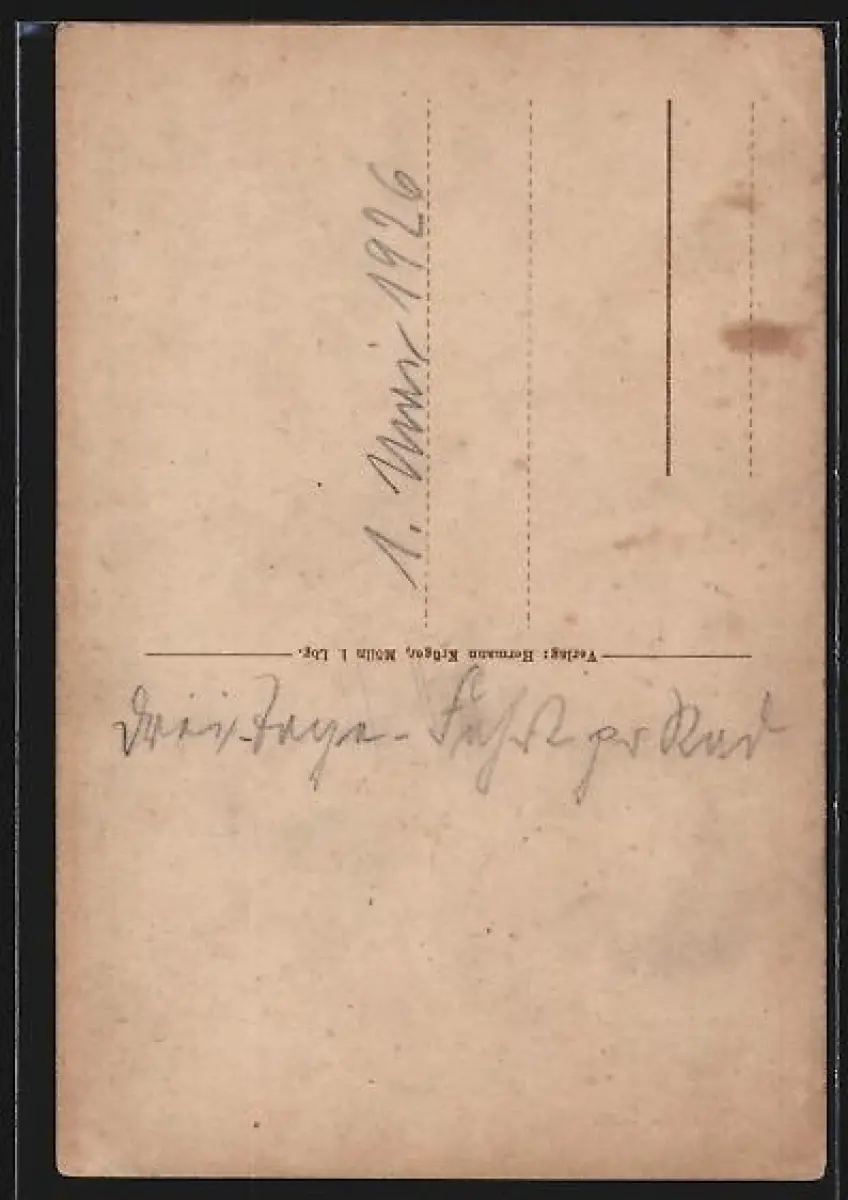 1. Mai 1926
Verlag: Hermann Krüger, Mölln i. Lbg.
Drei-Tage-Fahrt pr Rad